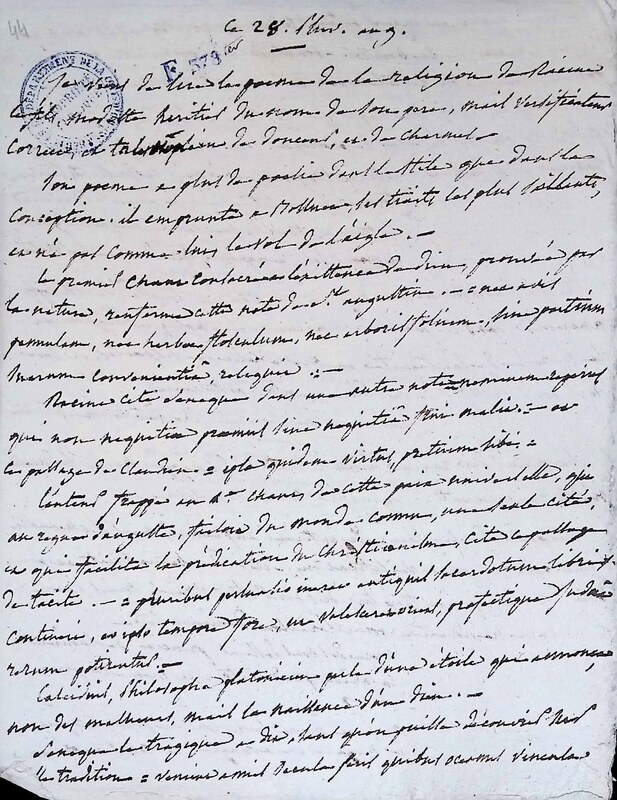 44
ce 28. Pluv. an 9.
DÉPARTEMENT DE LA
F 578 ter
Je viens de lire le poeme de la religion de Racine
le fils, modeste heritier du nom de son pere, mais versificateur
correct, et plein de douceur, et de charmes.
Son poeme a plus de poesie dans le stile que dans la
conception. il emprunte a ses traits les plus saillants,
et n'a pas comme lui, le vol de l'aigle. —
le premier chant consacré a l'existence de dieu, prouvée par
la nature, renferme cette note de st. augustin. — = nec avis
pennulam, nec herbae flosculum, nec arboris folium, sine partium
suarum convenientiâ, reliquit. = —
Racine cite seneque dans une autre note = neminem reperies
qui non nequitiae praemiis sine nequitiâ frui malit. = et
ce passage de Claudien = ipsa quidem virtus, pretium sibi. =
l'auteur frappé au 4e. chant de cette paix universelle, qui
au regne d'auguste, faisoit du monde connu, une seule cité,
et qui facilita la prédication du Christianisme, cite ce passage
de tacite. — = pluribus persuasio inerat antiquis sacerdotum libris
contineri, eo ipso tempore fore, ut valesceret oriens, profectique Judaeâ
rerum potirentur. =
Calcidius, philosophe platonicien parle d'une étoile qui annonça,
non des malheurs, mais la naissance d'un dieu. —
Seneque le tragique a dit, sans qu'on puisse découvrir
la tradition = venient annis saecula seris quibus oceanus vincula